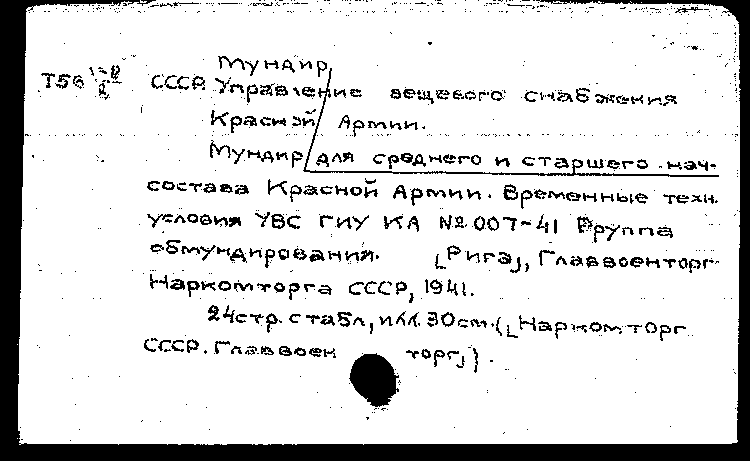 Мундир
Т56 1-11/2 СССР. Управление вещевого снабжения
Красной Армии.
Мундир для среднего и старшего нач-
состава Красной Армии. Временные техн.
условия УВС ГИУ КА № 007-41 Группа
обмундирования. [Рига], Главвоенторг
Наркомторга СССР, 1941.
24стр. с табл, илл. 30см. ([Наркомторг
СССР. Главвоен торг]).